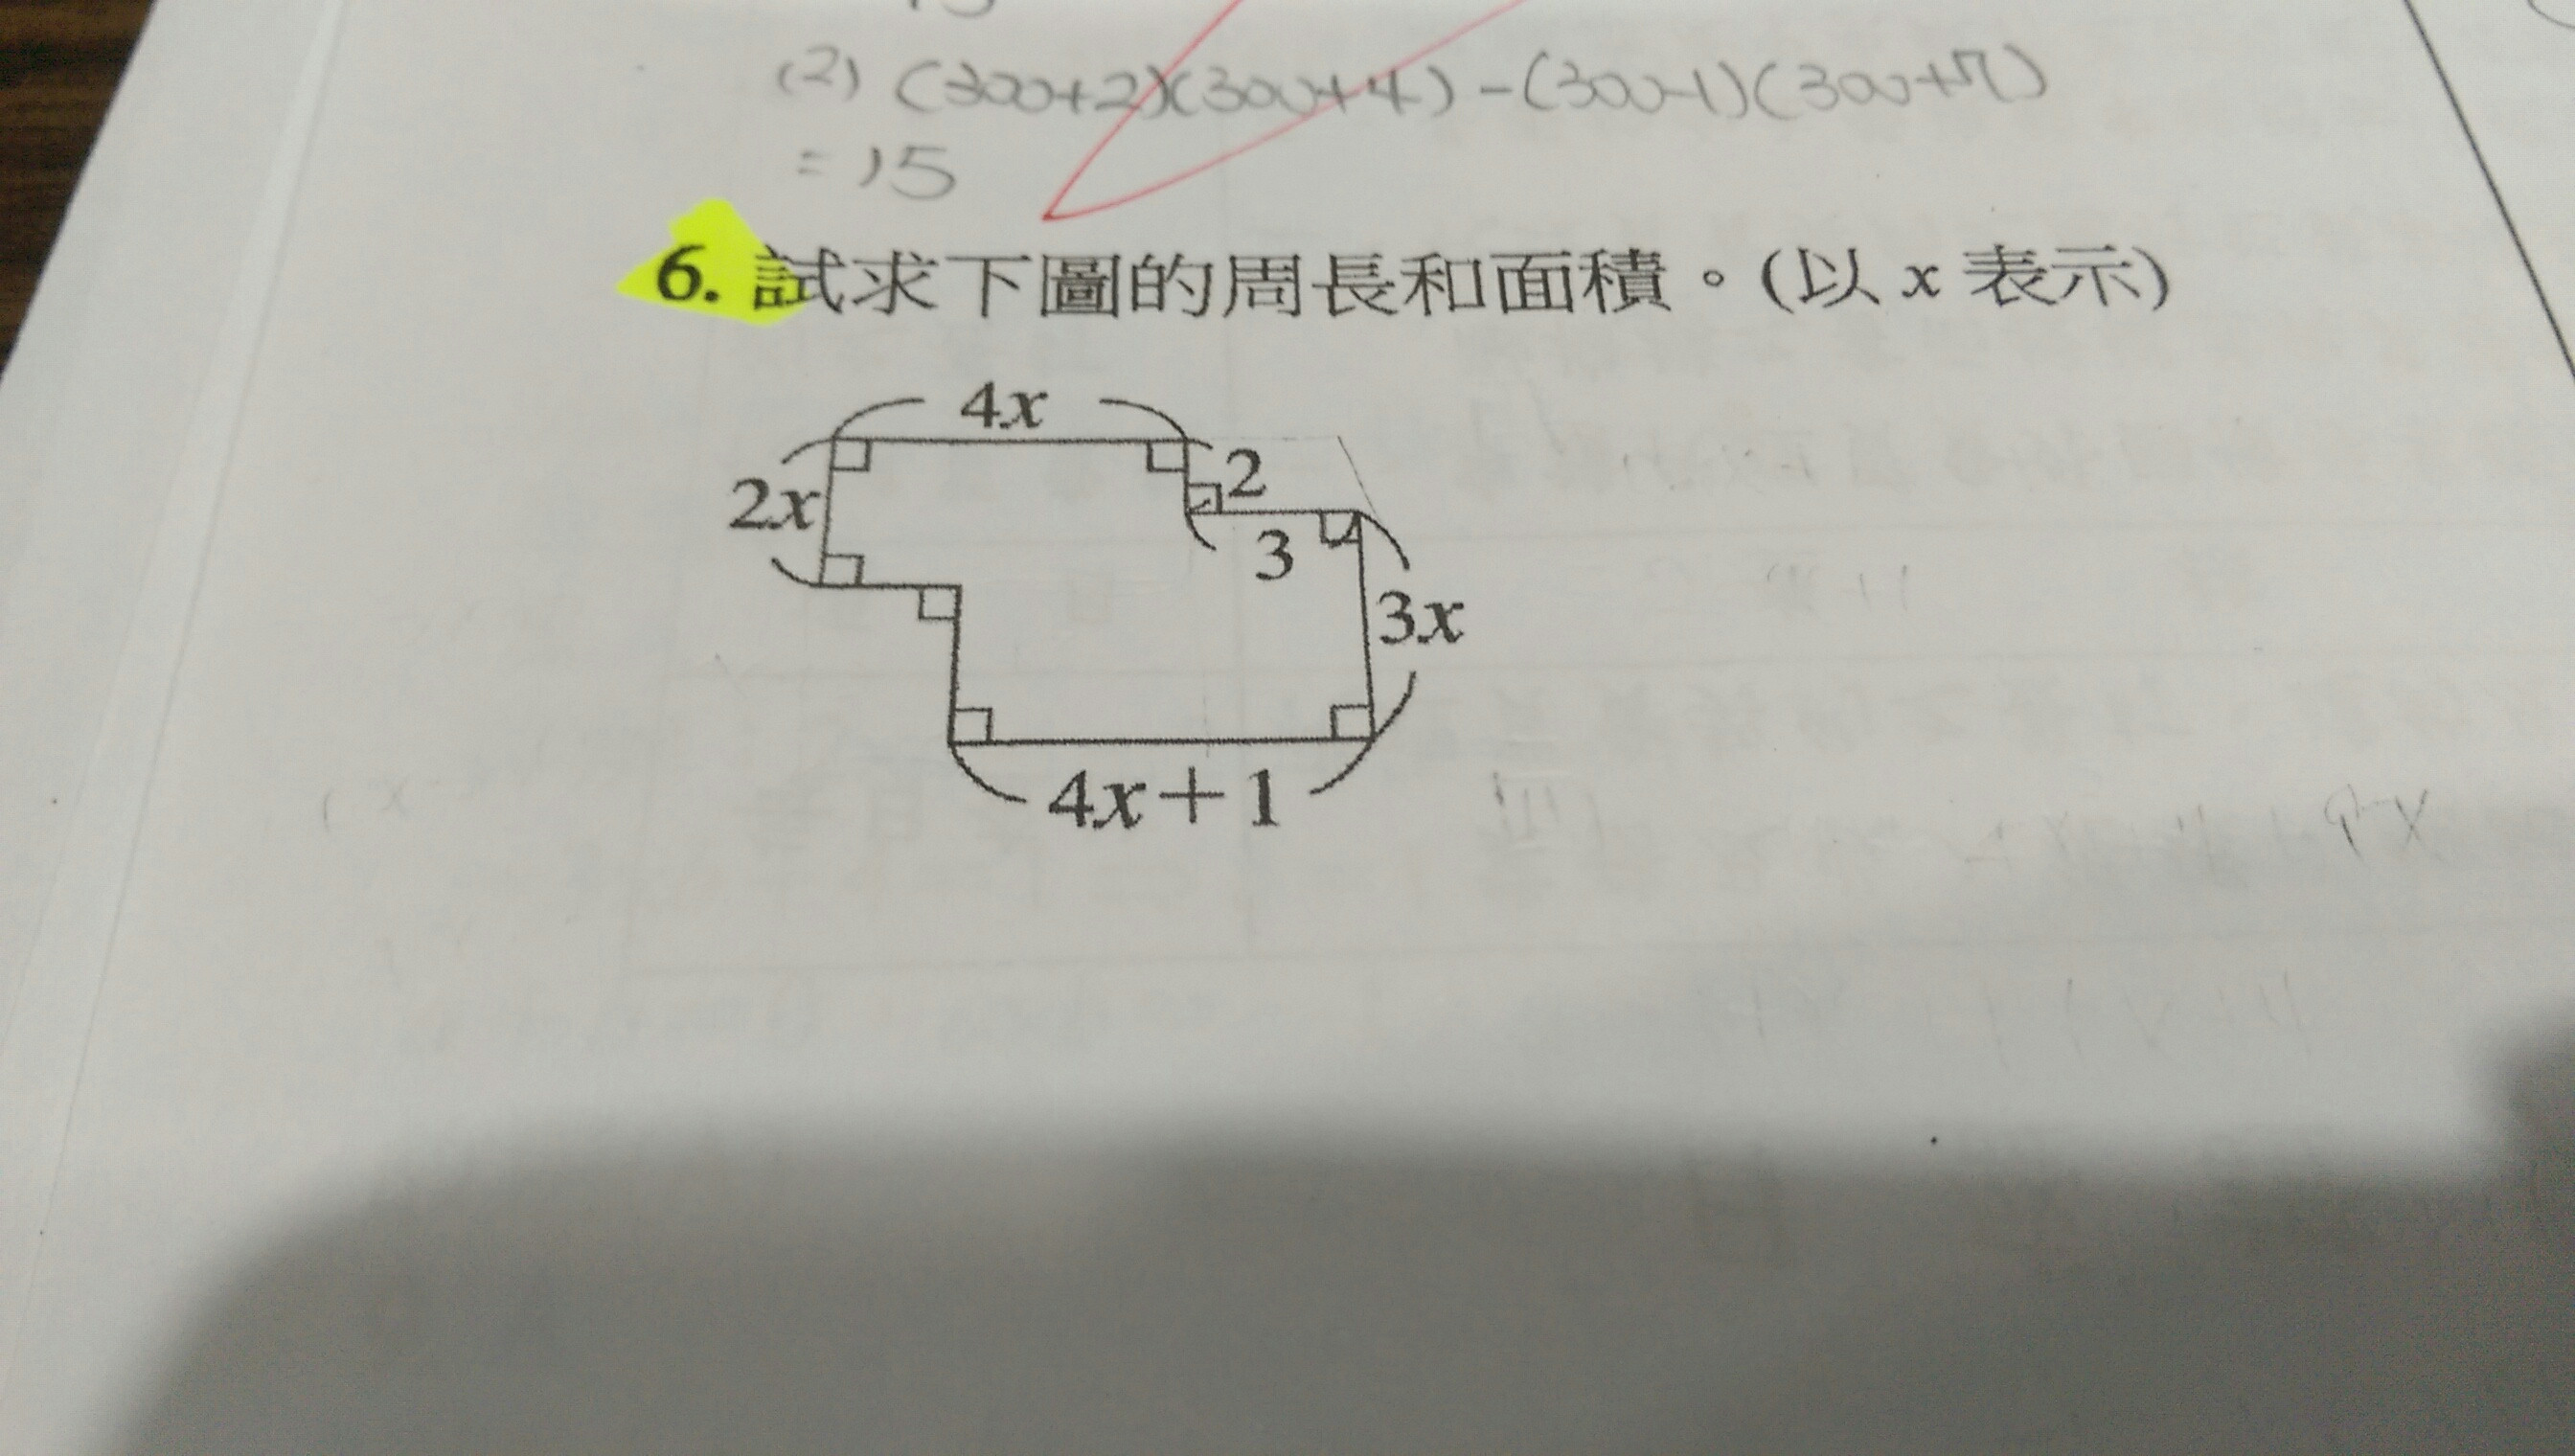 (2) (300+2)(300+4)-(300-1)(300+7)
=15
6. 試求下圖的周長和面積。(以 x 表示)
4x
2
2x
3
3x
4x+1